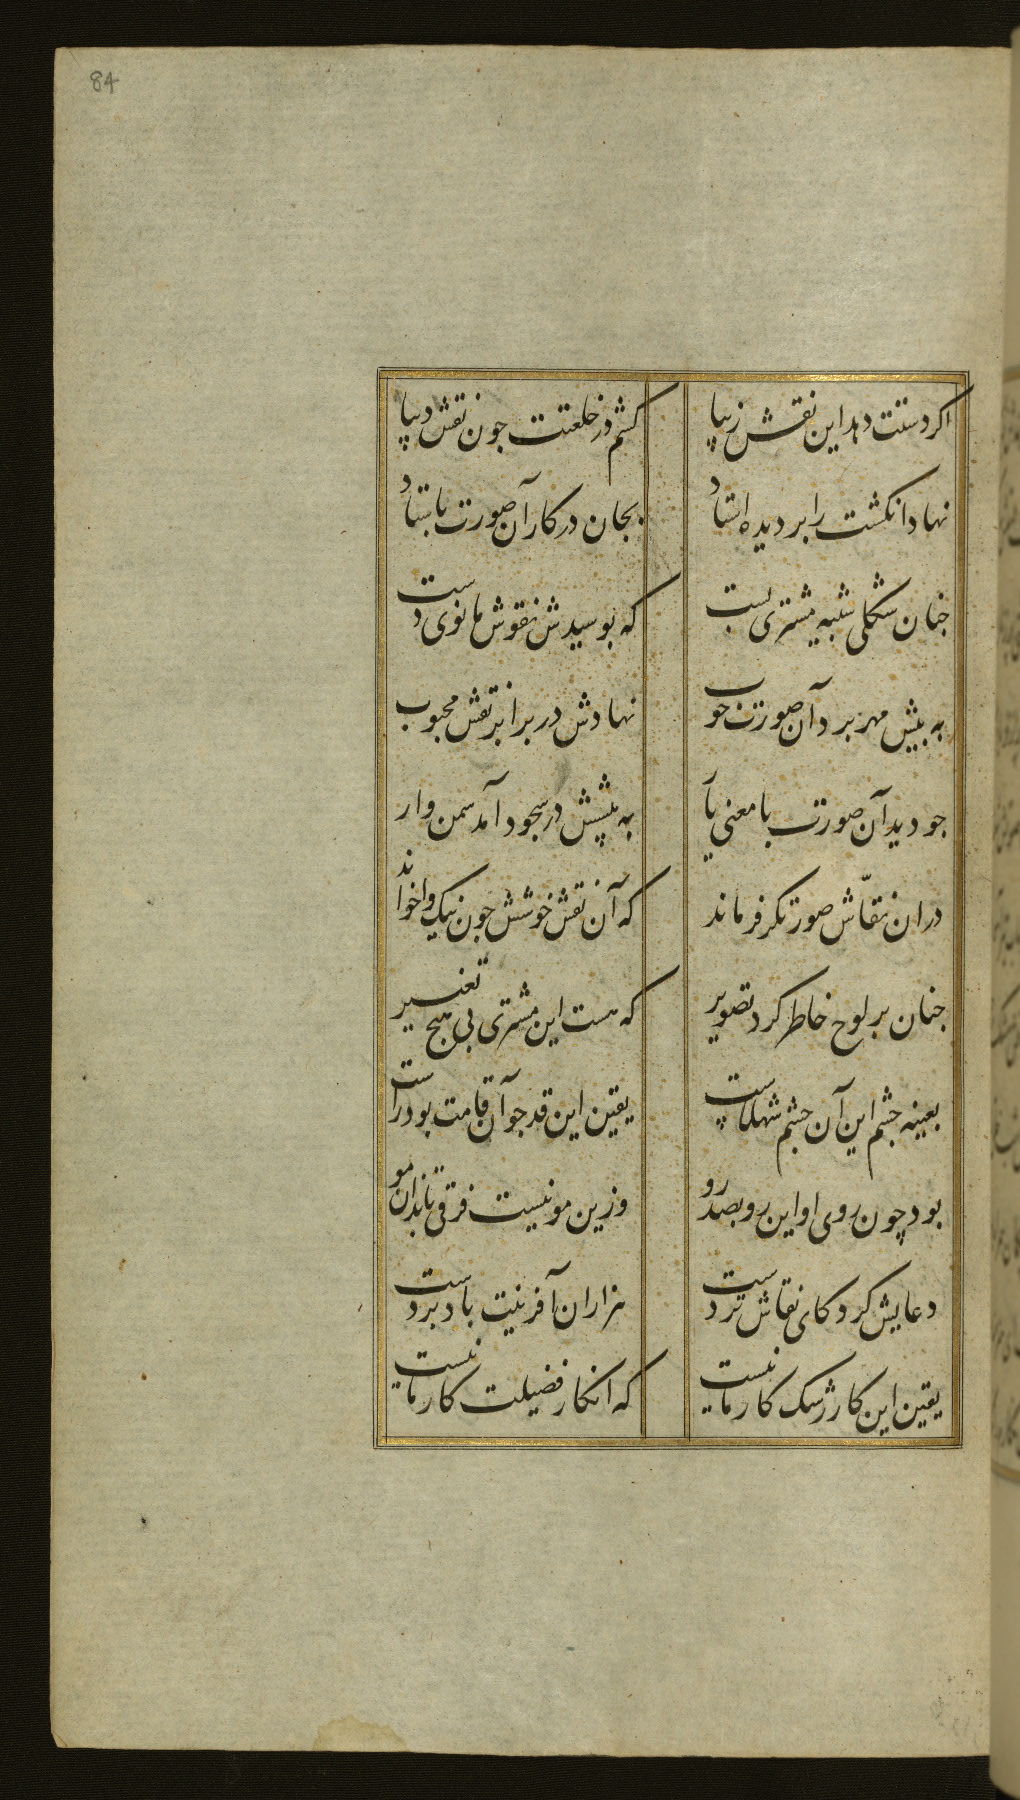 84
اکر دستت دهد این نقش زیبا
کشم در خلعتت جون نقش دیبا
نهاد انکشت را بر دیده استاد
بجان در کار آن صورت باستاد
جنان شکلی شبه مشتری بست
که بوسیدش نقوش مانوی دست
به پیش مهر برد آن صورت خوب
نهادش در برابر نقش محبوب
جو دید آن صورت با معنی یار
به پیشش در سجود آمد سمن وار
در ان نقّاش صورتکر فرماند
که آن نقش خوشش جون نیک واخواند
جنان بر لوح خاطر کرد تصویر
که هست این مشتری بی هیج تغییر
بعینه جشم این آن جشم شهلاست
یقین این قد جو آن قامت بود راست
بود چون روی او این رو بصد رو
وزین مو نیست فرقی تا بدان مو
دعایش کرد کای نقاش تردست
هزاران آفرینت باد بر دست
یقین این کار ژرسک کار مانیست
که انکار فضیلت کار ما نیست